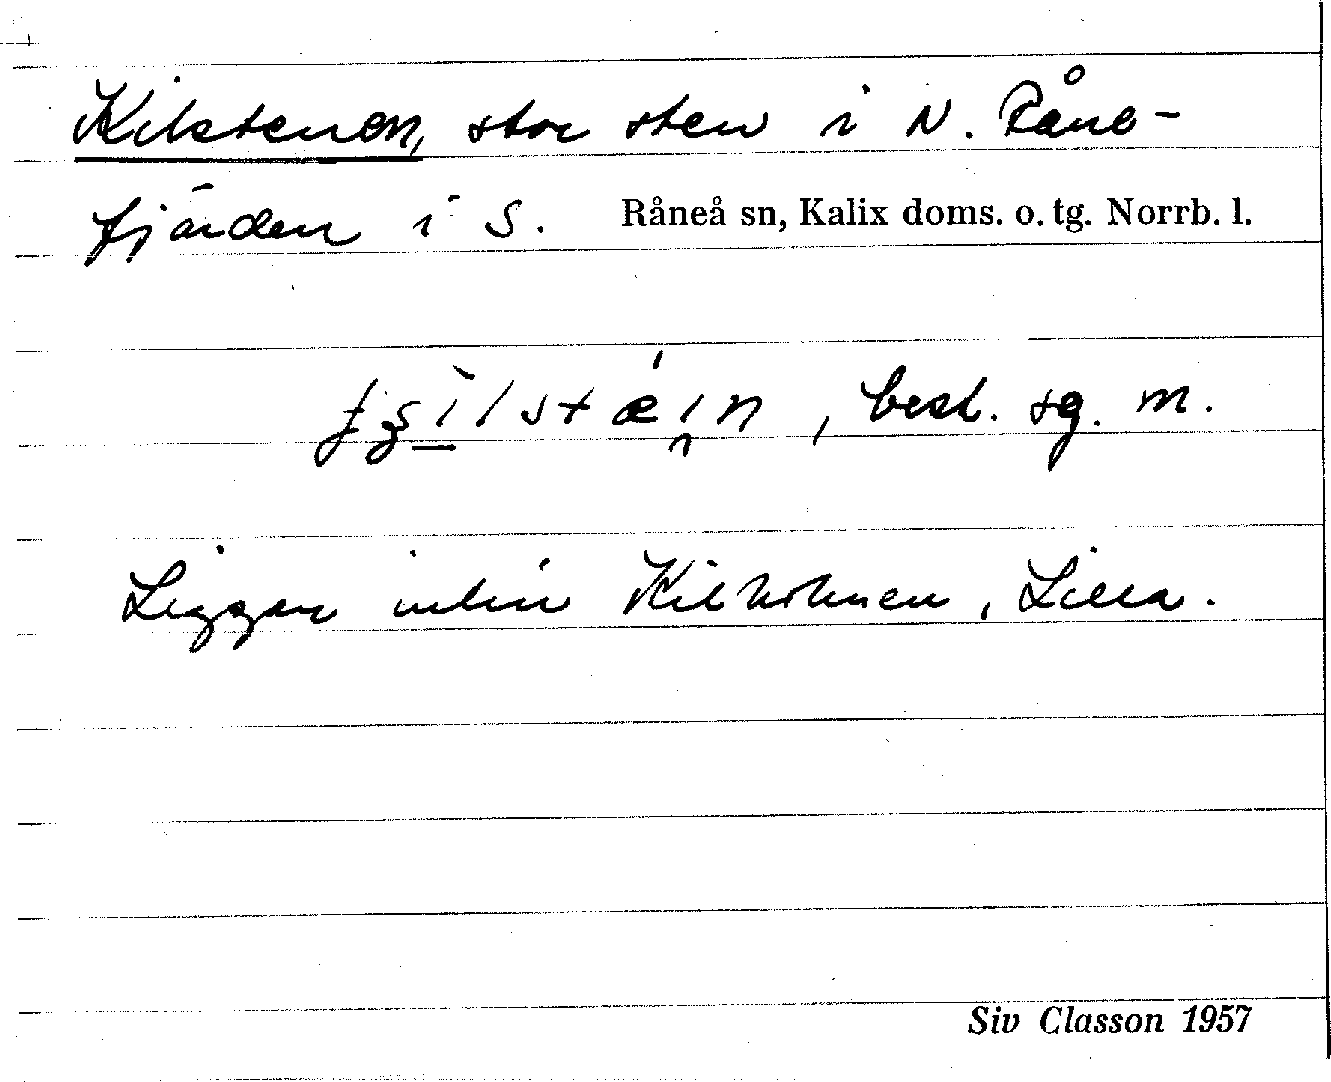 Kilstenen, stor sten i N. Råne-
fjärden i S. Råneå sn, Kalix doms. o. tg. Norrb. l.
best. sg. m.
Ligger intill Kilholmen, Lilla.
Siv Classon 1957